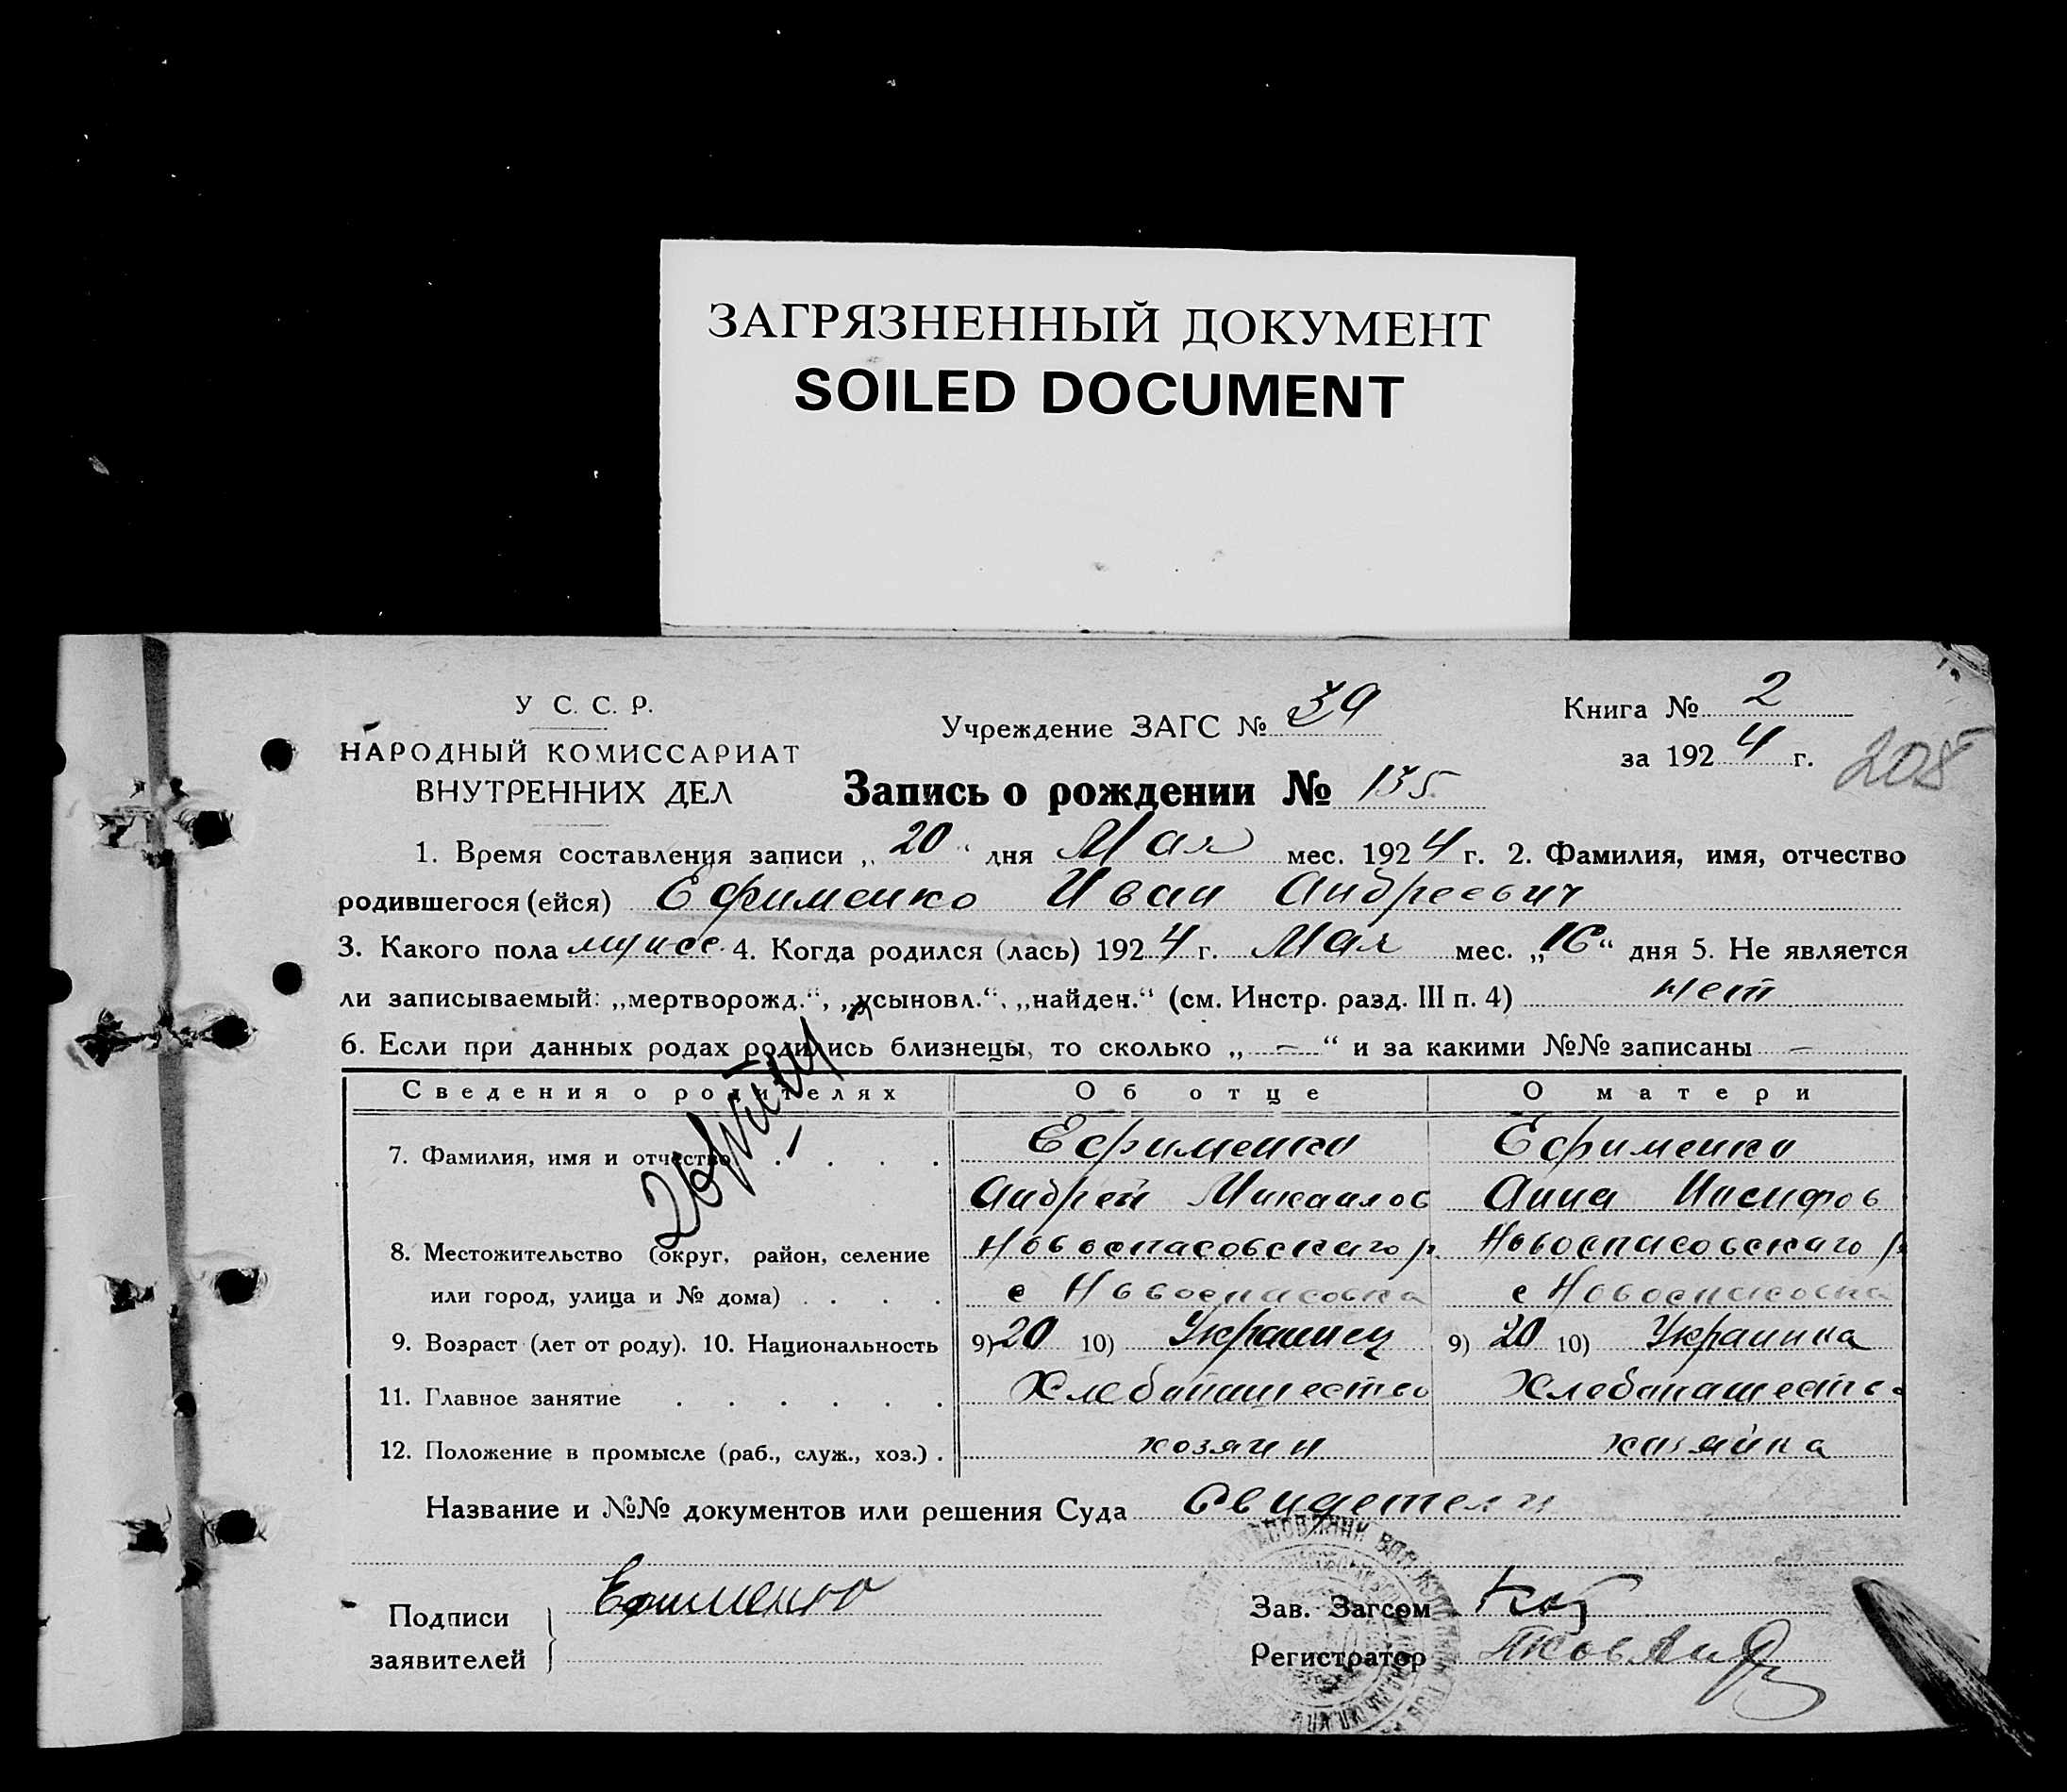 ЗАГРЯЗНЕННЫЙ ДОКУМЕНТ
SOILED DOCUMENT
У С. С. Р.
НАРОДНЫЙ КОМИССАРИАТ
ВНУТРЕННИХ ДЕЛ
Учреждение ЗАГС № 39
Книга № 2
за 1924 г.
208
Запись о рождении № 135
1. Время составления записи „20“ дня Мая мес. 1924 г. 2. Фамилия, имя, отчество
родившегося (ейся) Ефименко Иван Андреевич
3. Какого пола мужс. 4. Когда родился (лась) 1924 г. Мая мес. „16“ дня 5. Не является
ли записываемый: „мертворожд.“, „усыновл.“, „найден.“ (см. Инстр. разд. III п. 4) нет
6. Если при данных родах родились близнецы, то сколько „ — “ и за какими №№ записаны —
Сведения о родителях Об отце О матери
7. Фамилия, имя и отчество . . . . Ефименко Ефименко
Андрей Михаилов Анна Иосифов
8. Местожительство (округ, район, селение Новоспасовскаго р. Новоспасовскаго р.
или город, улица и № дома) . . . . с Новоспасовка с Новоспасовка
9. Возраст (лет от роду). 10. Национальность 9) 20 10) Украинец 9) 20 10) Украинка
11. Главное занятие . . . . . . Хлебопашество Хлебопашество
12. Положение в промысле (раб., служ., хоз.) . хозяин хозяйка
Название и №№ документов или решения Суда Свидетели
Подписи
заявителей
Ефименко
Зав. Загсом
Регистратор